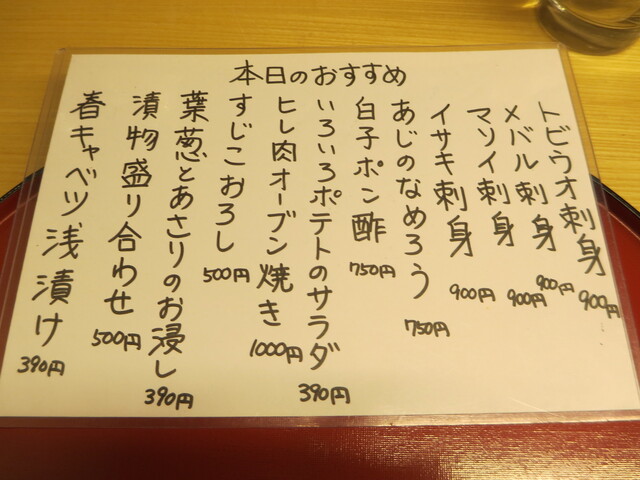 本日のおすすめ
トビウオ刺身 900円
メバル刺身 900円
マソイ刺身 900円
イサキ刺身 900円
あじのなめろう 750円
白子ポン酢 750円
いろいろポテトのサラダ 390円
ヒレ肉オーブン焼き 1000円
すじこおろし 500円
葉葱とあさりのお浸し 390円
漬物盛り合わせ 500円
春キャベツ浅漬け 390円